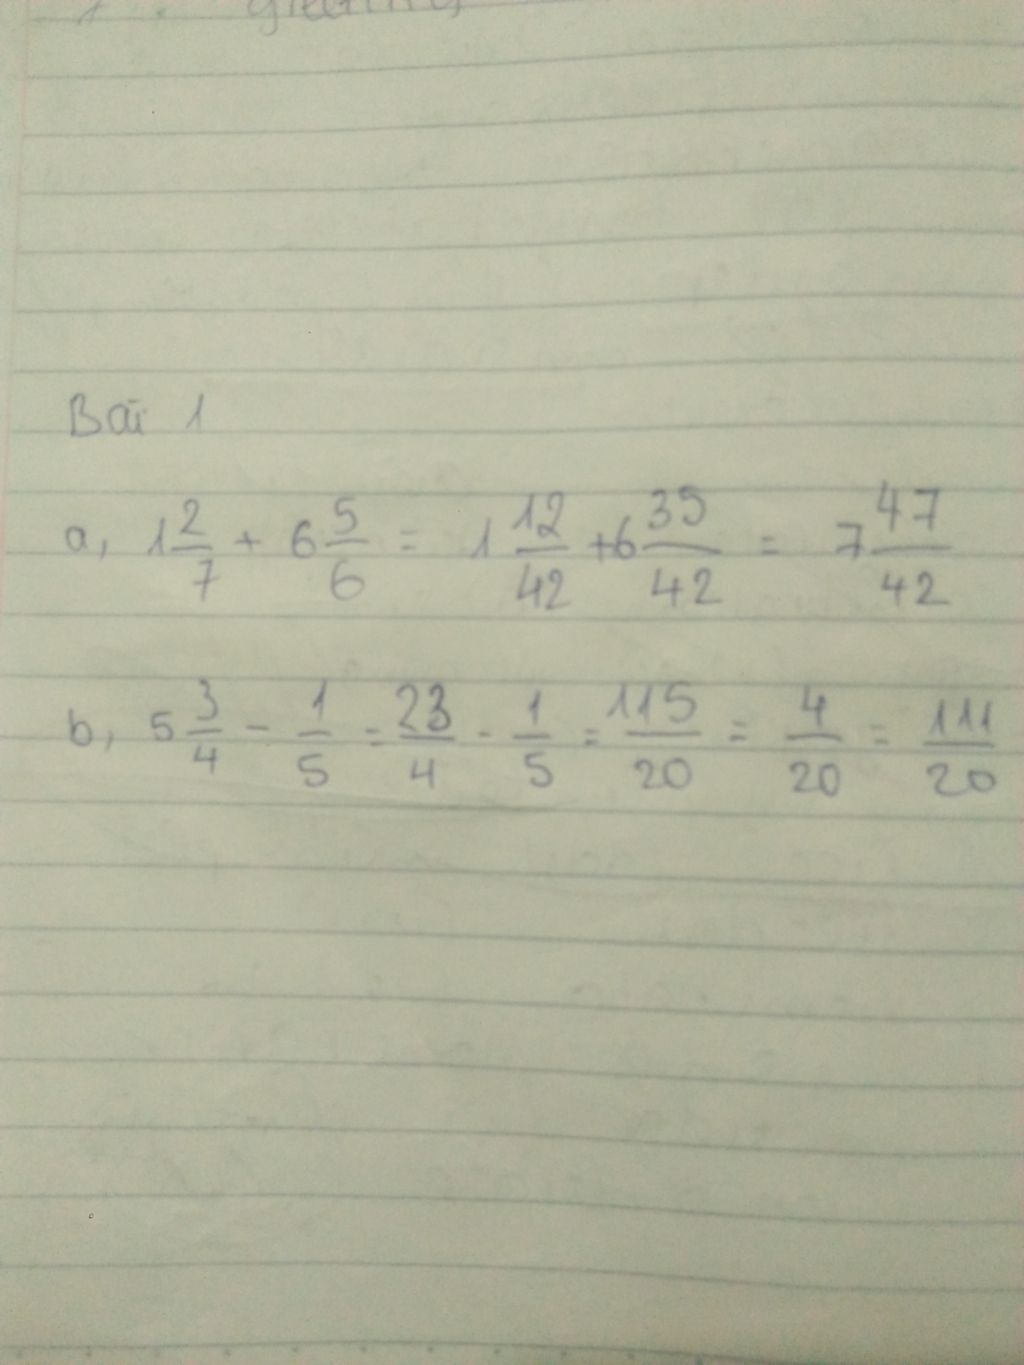 Bài 1
a, 1 2/7 + 6 5/6 = 1 12/42 + 6 35/42 = 7 47/42
b, 5 3/4 - 1/5 = 23/4 - 1/5 = 115/20 = 4/20 = 111/20